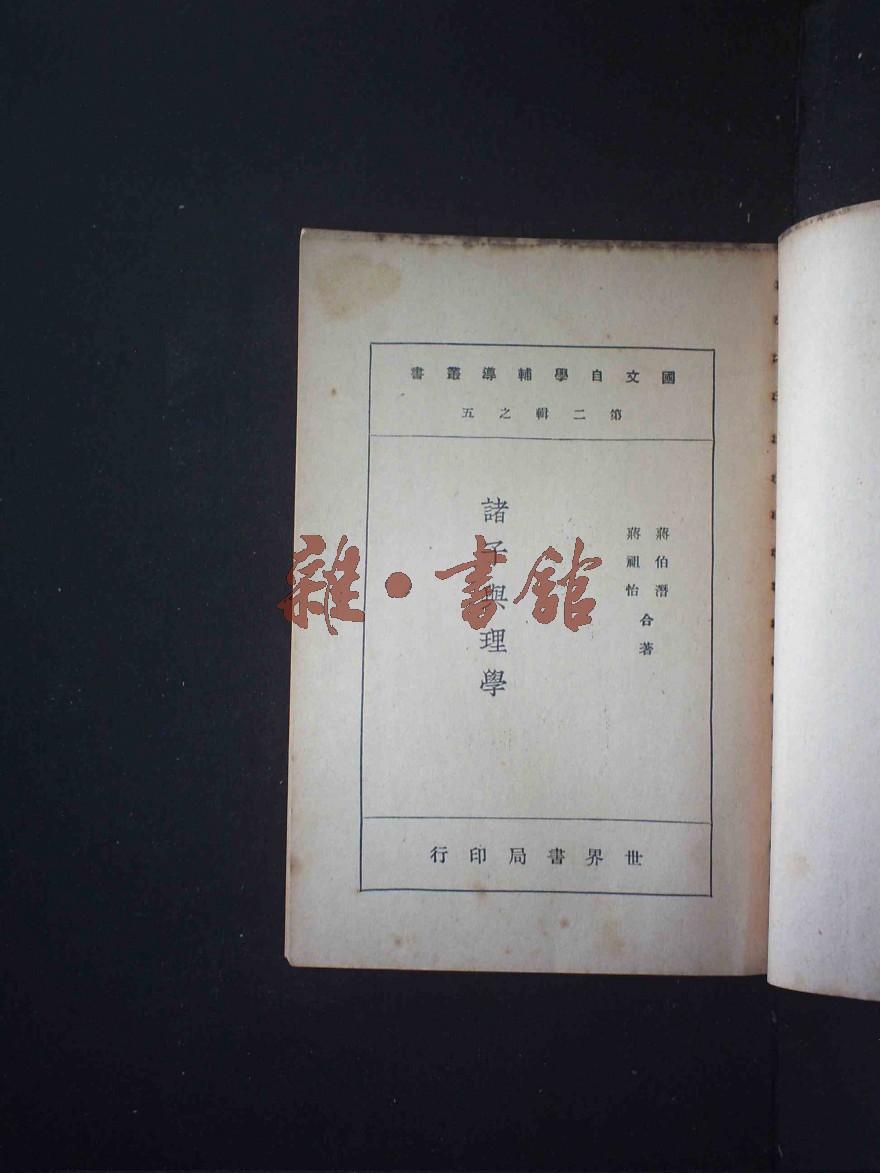 國文自學輔導叢書
第二輯之五
蔣伯潛
蔣祖怡
合著
諸子與理學
世界書局印行
雜·書館